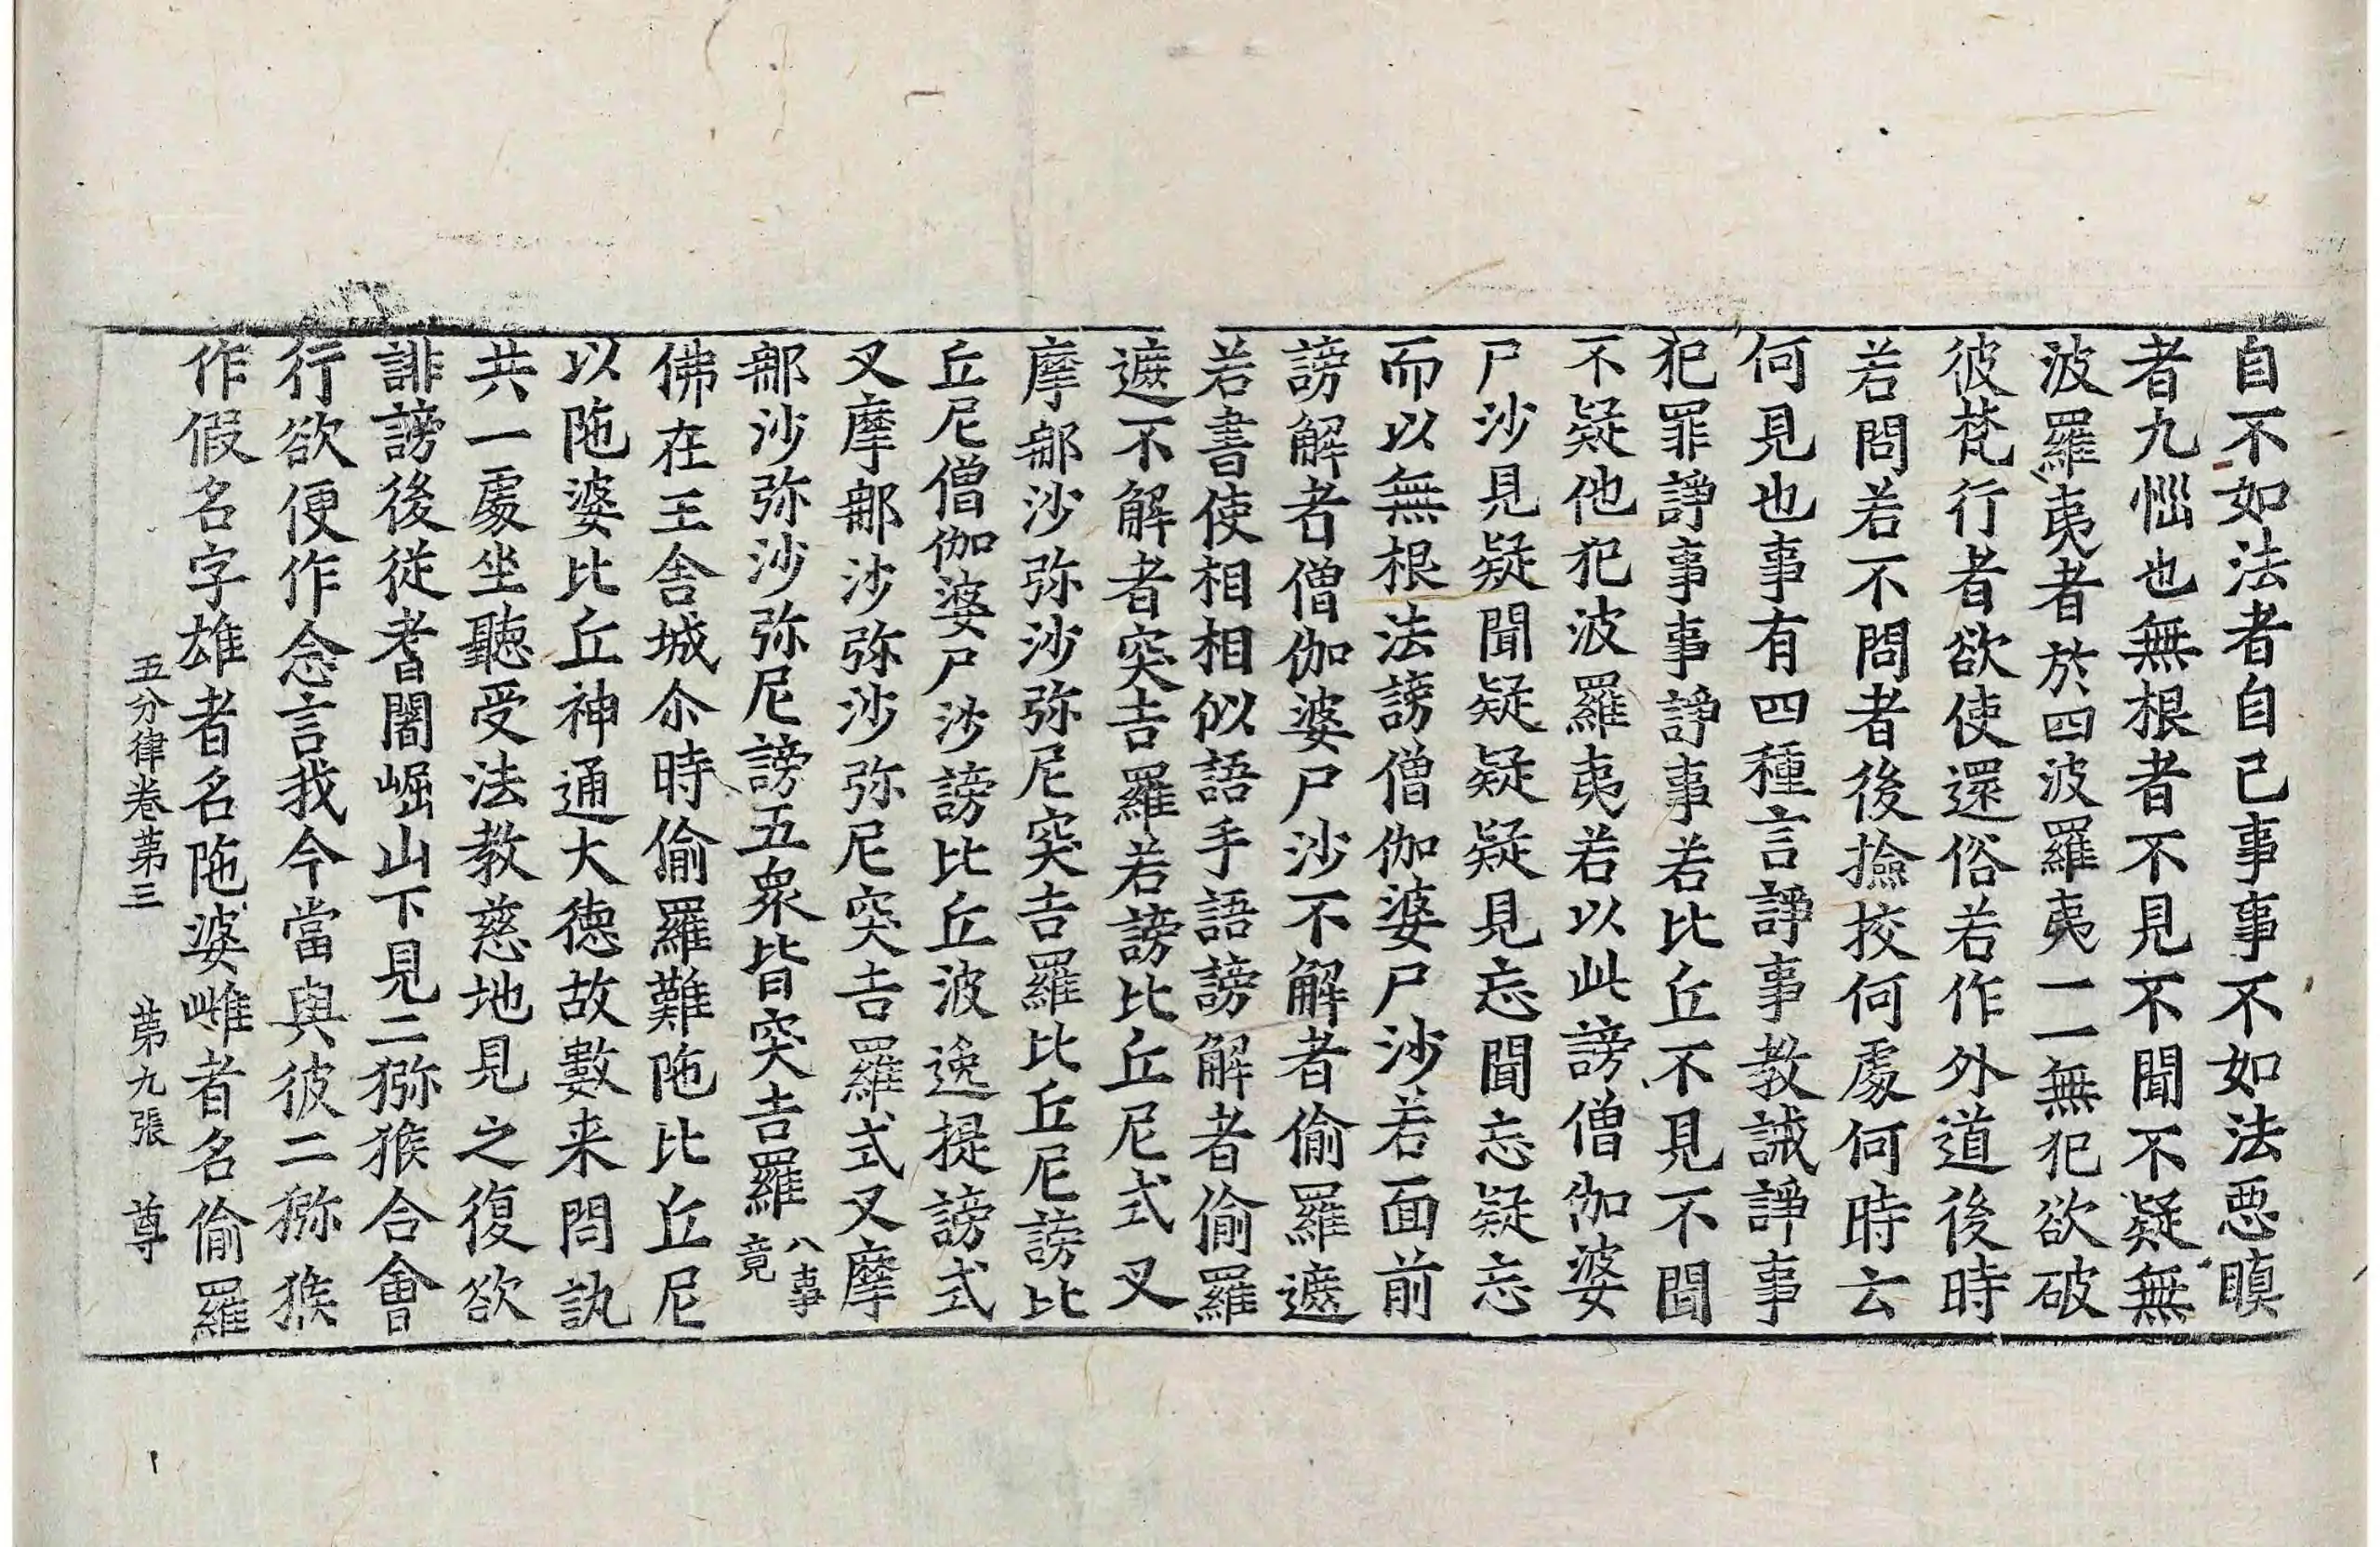 自不如法者自己事事不如法惡瞋
者九惱也無根者不見不聞不疑無
波羅夷者於四波羅夷一一無犯欲破
彼梵行者欲使還俗若作外道後時
若問若不問者後撿挍何處何時云
何見也事有四種言諍事教誡諍事
犯罪諍事事諍事若比丘不見不聞
不疑他犯波羅夷若以此謗僧伽婆
尸沙見疑聞疑疑疑見忘聞忘疑忘
而以無根法謗僧伽婆尸沙若面前
謗解者僧伽婆尸沙不解者偷羅遮
若書使相相似語手語謗解者偷羅
遮不解者突吉羅若謗比丘尼式叉
摩那沙弥沙弥尼突吉羅比丘尼謗比
丘尼僧伽婆尸沙謗比丘波逸提謗式
叉摩那沙弥沙弥尼突吉羅式叉摩
那沙弥沙弥尼謗五眾皆突吉羅八事竟
佛在王舍城尒時偷羅難陁比丘尼
以陁婆比丘神通大德故數来問訊
共一處坐聽受法教慈地見之復欲
誹謗後從耆闍崛山下見二猕猴合會
行欲便作念言我今當與彼二猕猴
作假名字雄者名陁婆雌者名偷羅
五分律卷第三　第九張　尊